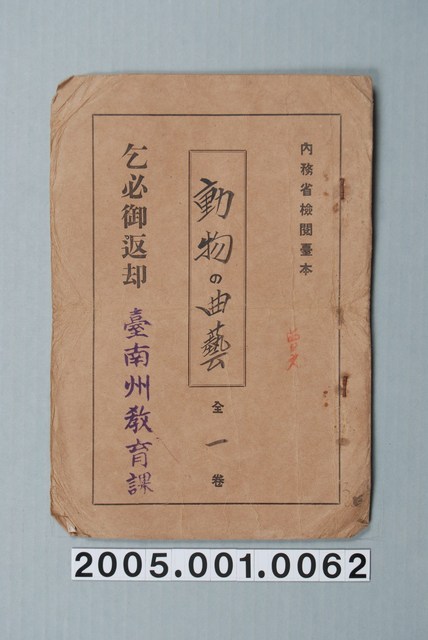 內務省檢閱臺本
動物の曲藝
全一卷
乞必御返却
臺南州教育課
2005.001.0062